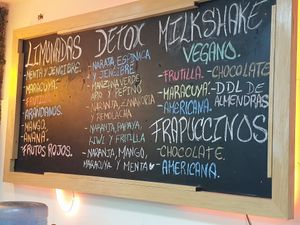 LIMONADAS
-MENTA Y JENGIBRE.
-MARACUYÁ.
-FRUTILLA
-ARANDANOS.
-MANGO.
-ANANÁ.
-FRUTOS ROJOS.
DETOX
-NARANJA, ESPINACA
Y JENGIBRE.
-MANZANA VERDE,
APIO Y PEPINO
-NARANJA, ZANAHORIA
Y REMOLACHA
-NARANJA, PAPAYA,
KIWI Y FRUTILLA
-NARANJA, MANGO,
MARACUYA Y MENTA
MILKSHAKE
VEGANO.
-FRUTILLA.
-CHOCOLATE
-MARACUYÁ.
-DDL DE
ALMENDRAS
-AMERICANA.
FRAPUCCINOS
-CHOCOLATE.
-AMERICANA.